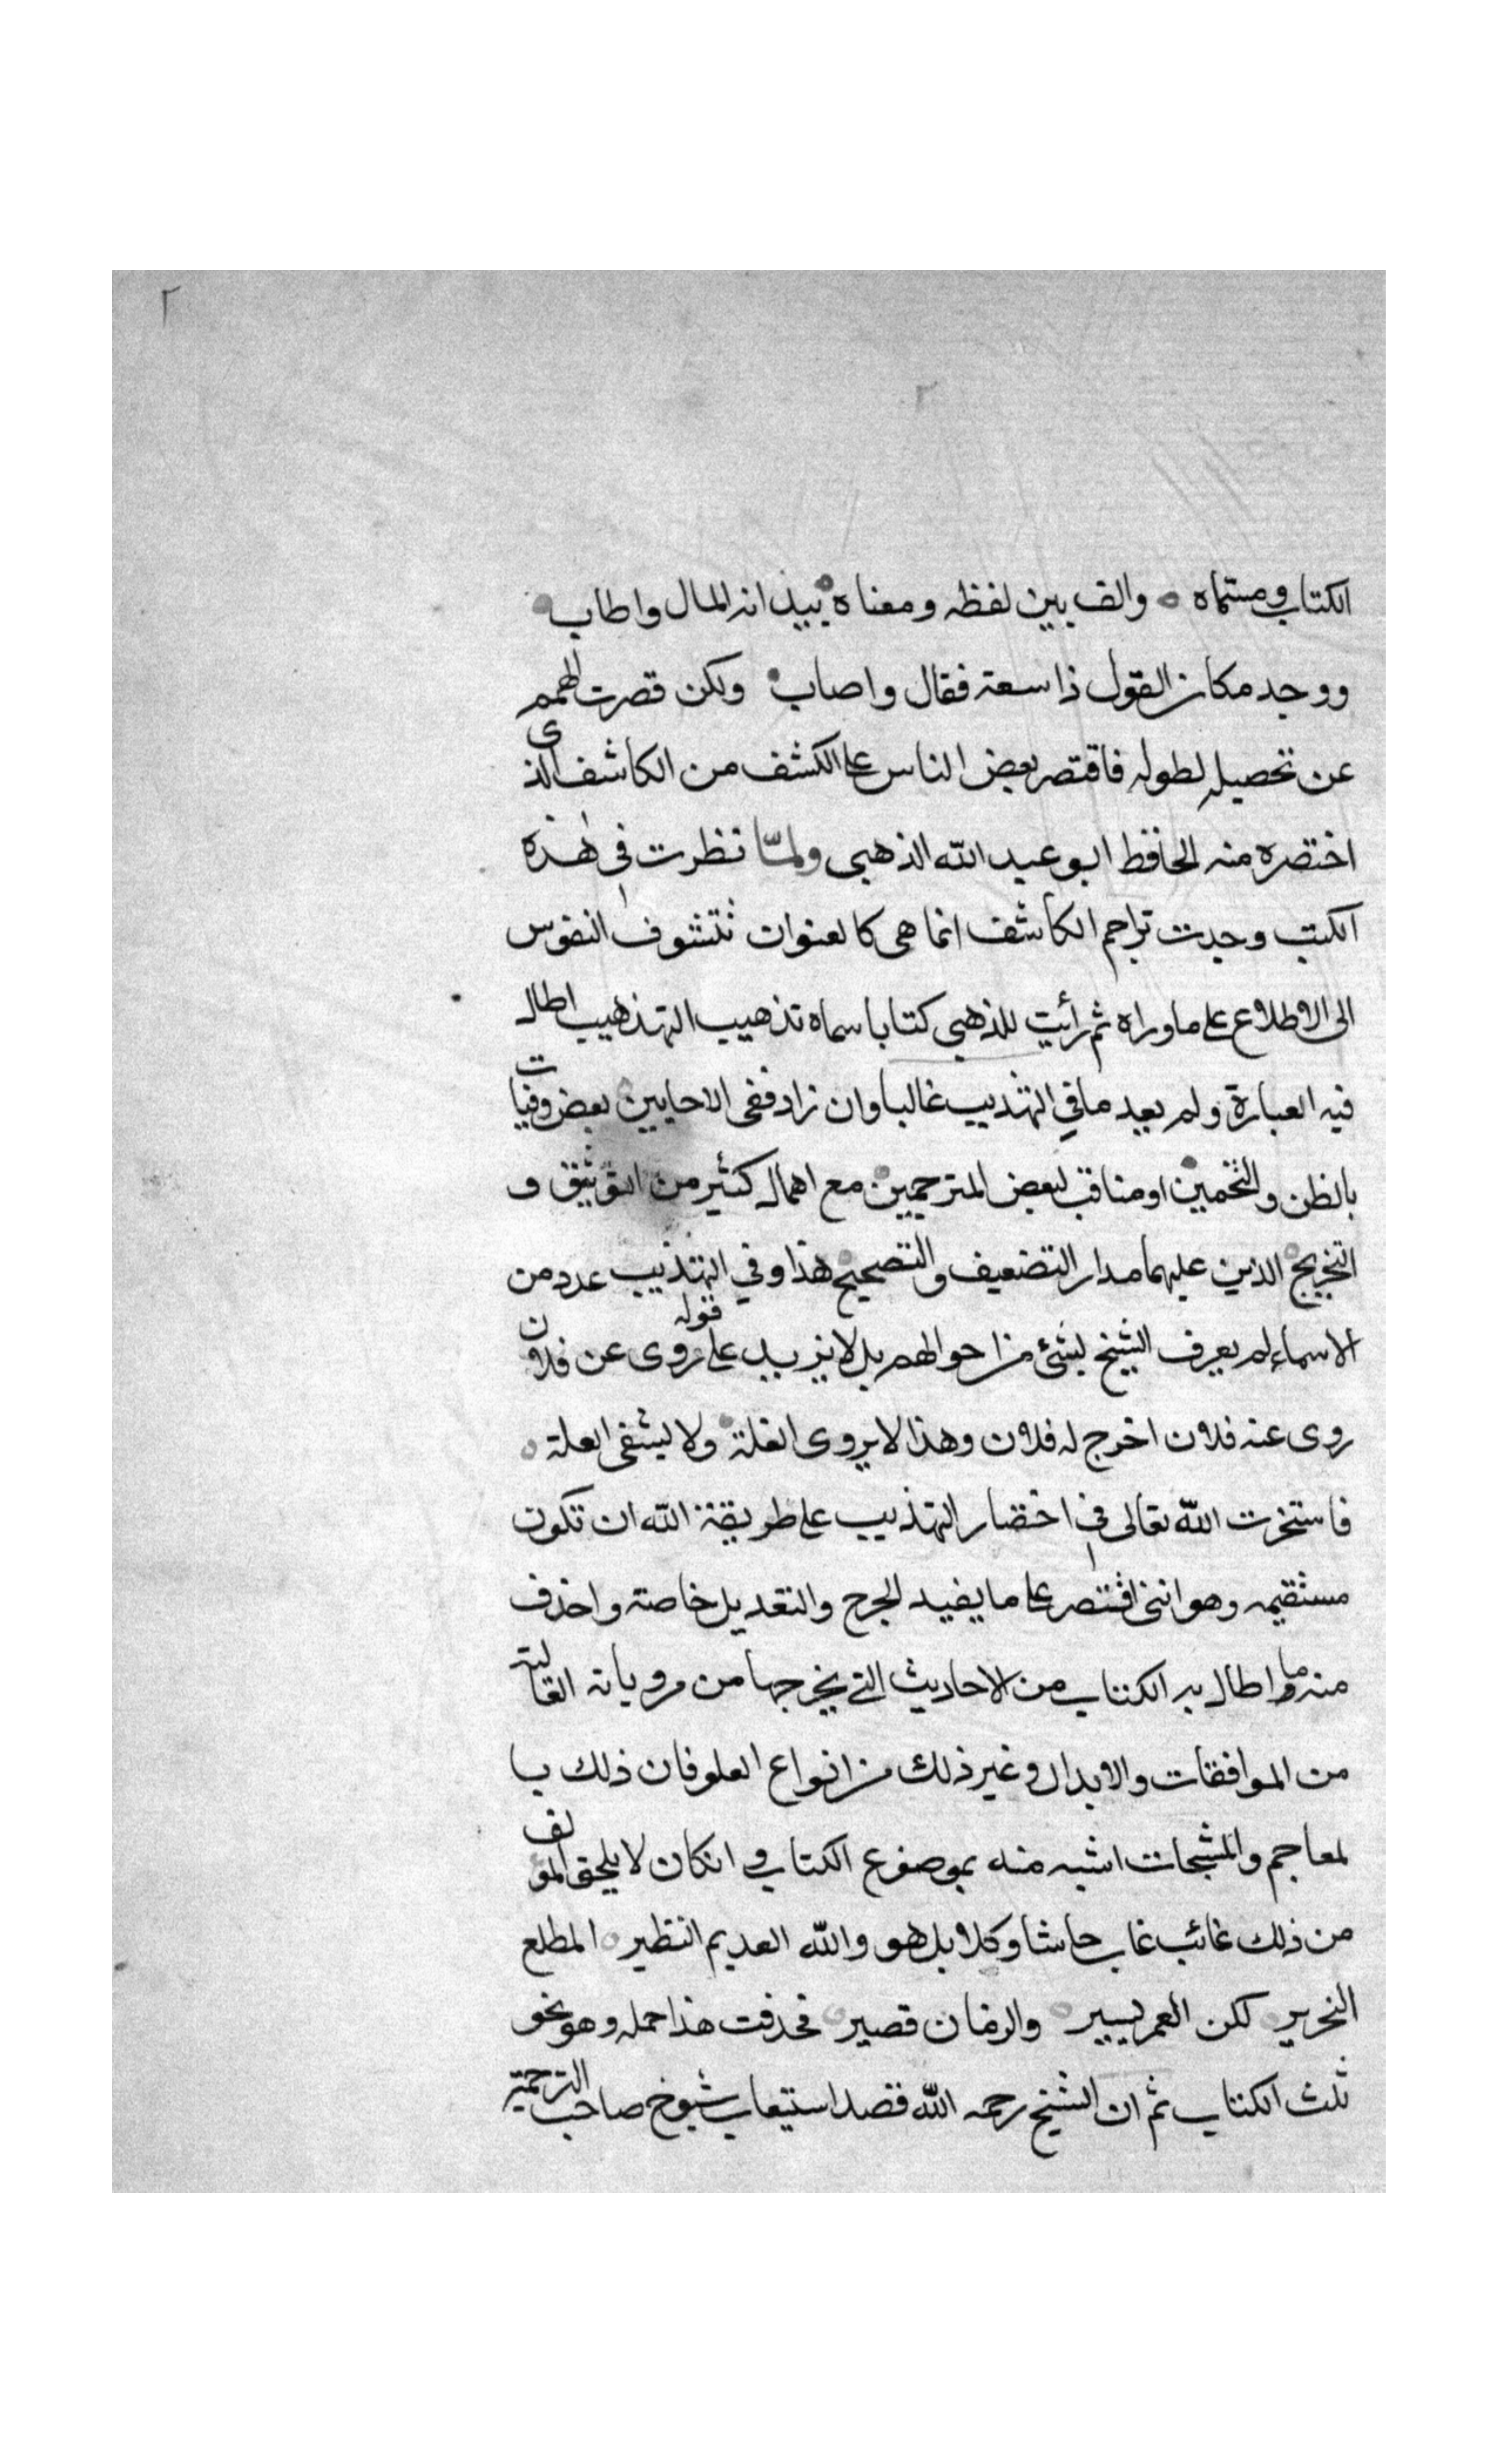 ٢
٢
الكتاب ومسماه والف بين لفظه ومعناه بيد انه المال واطاب
ووجد مكان القول ذا سعة فقال واصاب ولكن قصرت الهمم
عن تحصيله لطوله فاقتصر بعض الناس على الكشف من الكاشف الذى
اختصره منه الحافظ ابو عبد الله الذهبى ولمّا نظرت فى هذه
الكتب وجدت تراجم الكاشف انما هى كالعنوان تتشوف النفوس
الى الاطلاع على ماوراه ثم رأيت للذهبى كتابا سماه تذهيب التهذهيب اطال
فيه العبارة ولم يعد مافي التهذيب غالبا وان زاد ففى الاحايين بعض وفيات
بالظن والتخمين او مناقب لبعض المترجمين مع اهمال كثير من التوثيق و
التجريح الذين عليهما مدار التضعيف والتصحيح هذا وفي التهذيب عدد من
الاسماء لم يعرف الشيخ بشئ من احوالهم بل لا يزيد على قوله روى عن فلان
روى عنه فلان اخرج له فلان وهذا لا يروى الغلة ولا يشفى العلة
فاستخرت الله تعالى في اختصار التهذيب على طريقة الله ان تكون
مستقيمه وهو اننى اقتصر على ما يفيد الجرح والتعديل خاصة واحذف
منه ما واطال به الكتاب من الاحاديث التي يخرجها من مروياته العالية
من الموافقات والابدال وغير ذلك من انواع العلو فان ذلك با
لمعاجم والمشيخات اشبه منه بموضوع الكتاب وانكان لا يلحق المؤلف
من ذلك غائب غاب حاشا وكلا بل هو والله العديم النظير المطلع
النحرير لكن العمر يسير والزمان قصير فحذفت هذا جمله وهو نحو
ثلث الكتاب ثم ان الشيخ رحمه الله قصد استيعاب شيوخ صاحب الترجمة